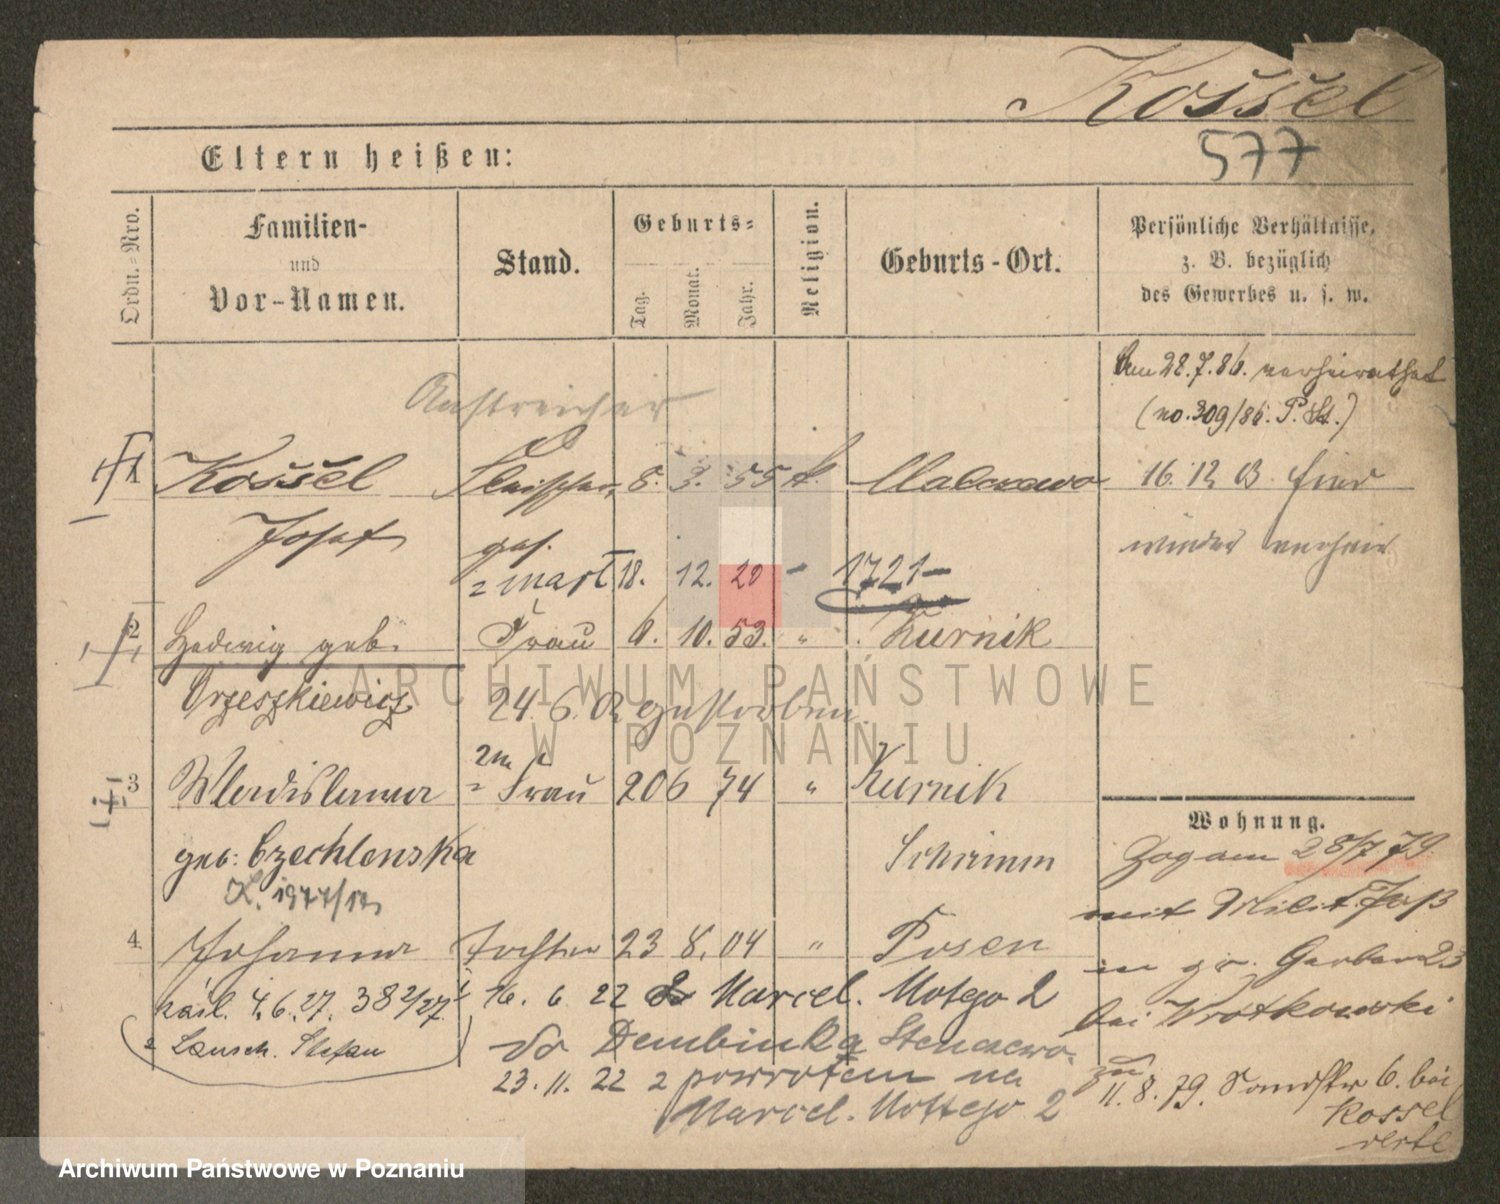 Koššel
577
Eltern heißen:
Ordn.-Nro.
Familien-
und
Vor-Namen.
Stand.
Geburts-
Tag.
Monat.
Jahr.
Religion.
Geburts-Ort.
Persönliche Verhältnisse,
z. B. bezüglich
des Gewerbes u. s. w.
Am 28.7.86. verheirathet
(no. 309/86. P. St.)
Anstreicher
1 Koššel Fleischer, 8. 3. 55 k.
16. 12.
wieder
Josef
ges.
18. 12. 20 - 1721-
2 Hedwig geb. Frau 6. 10. 53. " Kurnik
Orzeszkiewicz
24. 6. 02 gestorben.
3 Wladislawa Frau 20 6 74 " Kurnik
geb: Czechlenska Schrimm
Wohnung.
Zog am 28/7 79
mit Milit. Paß
4 Johanna Tochter 23 8. 04 " Posen
in gr. Gerber 23
4.6.27. 382/27
16. 6 22 Marcel. Motego 2
bei Wrotkowski
Stefan
do Dembinka Stenczewo.
23. 11. 22 z powrotem na
Marcel. Mottego 2
11. 8. 79. Sandstr 6. bei
Kossel
ARCHIWUM PAŃSTWOWE
W POZNANIU
Archiwum Państwowe w Poznaniu